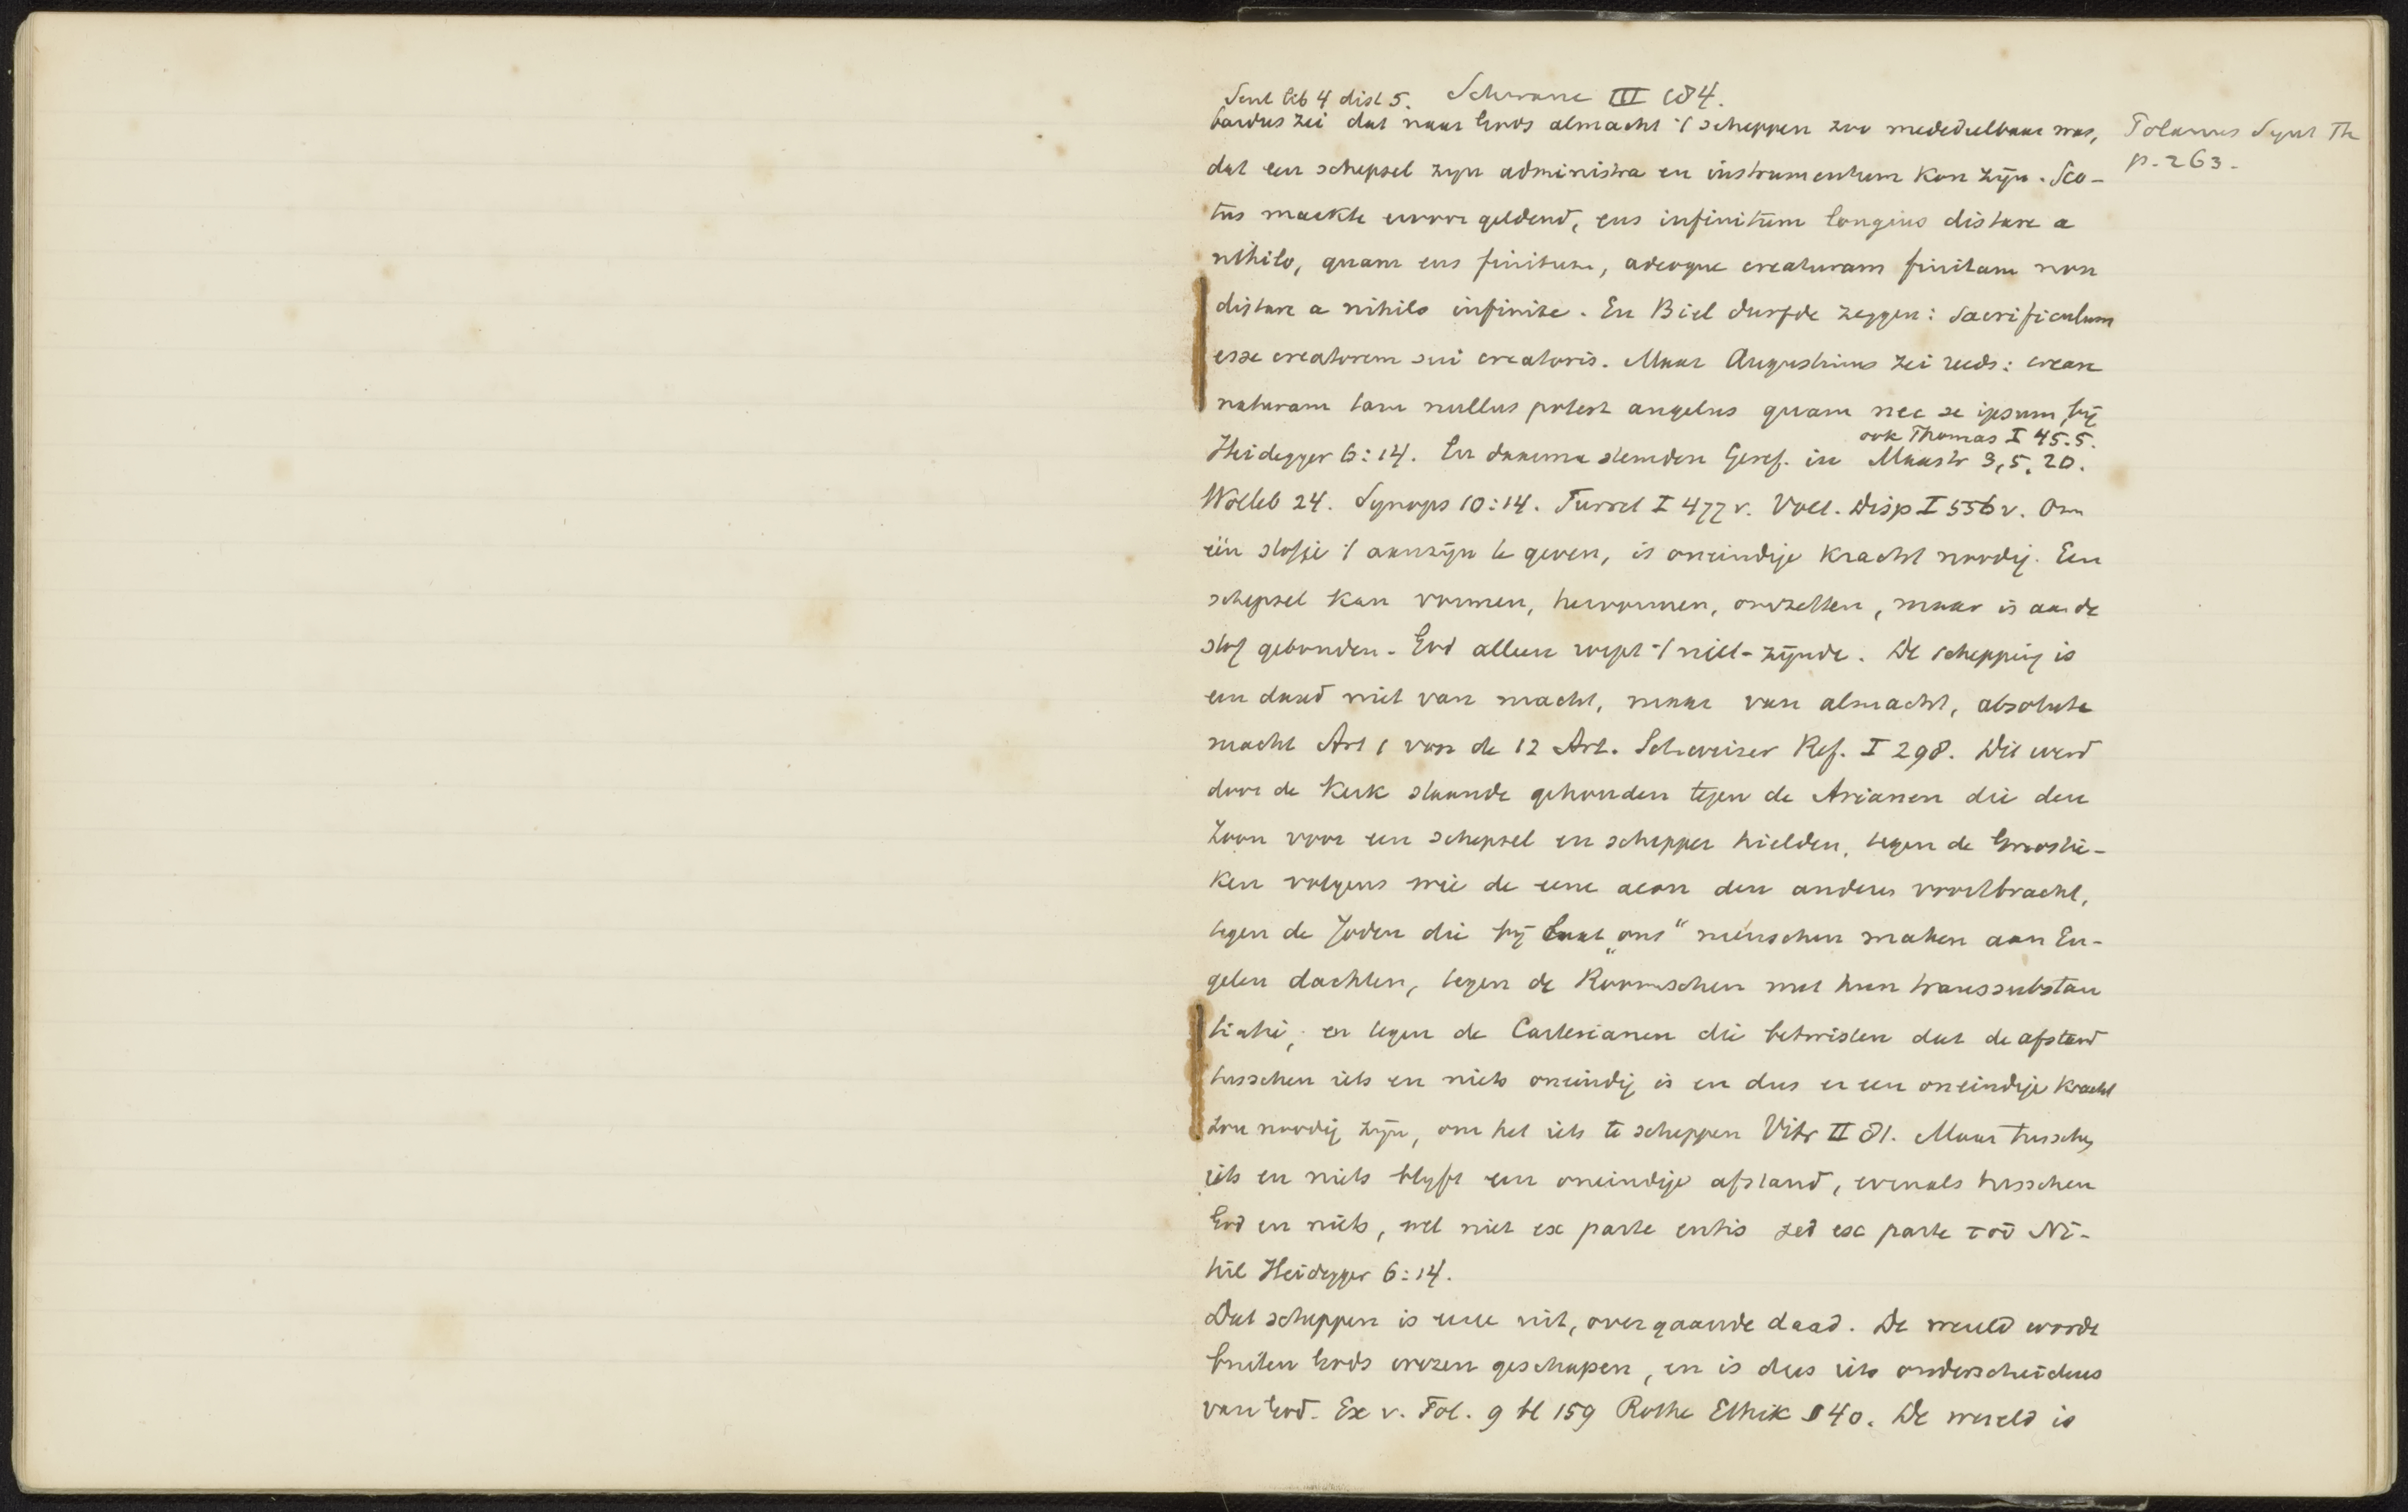 Sent lib 4 dist 5. Schwane III 184.
bardus zei dat naar Gods almacht 't scheppen zoo mededeelbaar was,
Polanus Synt Th
p. 263.
dat een schepsel zijn administra en instrumentum kon zijn. Sco-
tus maakte ervoor geldend, ens infinitum longius distare a
nihilo, quam ens finitum, adeoque creaturam finitam non
distare a nihilo infinite. En Biel durfde zeggen: Sacrificulum
esse creatorem sui creatoris. Maar Augustinus zei reeds: creare
naturam tam nullus potest angelus quam nec se ipsum, bij
ook Thomas I 45.5.
Heidegger 6:14. En daarmee stemden Geref. in Mastr 3, 5, 20.
Wolleb 24. Synops 10:14. Turret I 477 v. Voet. Disp I 556 v. Om
één stofje 't aanzijn te geven, is oneindige kracht noodig. Een
schepsel kan vormen, hervormen, omzetten, maar is aan de
stof gebonden. God alleen roept 't niet-zijnde. De schepping is
een daad niet van macht, maar van almacht, absolute
macht Art 1 van de 12 Art. Schweizer Ref. I 298. Dit werd
door de Kerk staande gehouden tegen de Arianen die den
Zoon voor een schepsel en schepper hielden, tegen de Gnostie-
ken volgens wie de eene aeon den anderen voortbracht,
tegen de Joden die bij Laat „ons" menschen maken aan En-
gelen dachten, tegen de Roomschen met hun transsubstan
tiatie, en tegen de Cartesianen die betwisten dat de afstand
tusschen iets en niets oneindig is en dus er een oneindige kracht
zou noodig zijn, om het iets te scheppen Vitr II 81. Maar tusschen
iets en niets blijft een oneindige afstand, evenals tusschen
God en niets, wel niet ex parte entis sed ex parte τοῦ Ni-
hil Heidegger 6:14.
Dat scheppen is eene uit, overgaande daad. De wereld wordt
buiten Gods wezen geschapen, en is dus iets onderscheidens
van God. Ex v. Fol. 9 bl 159 Rothe Ethik § 40. De wereld is